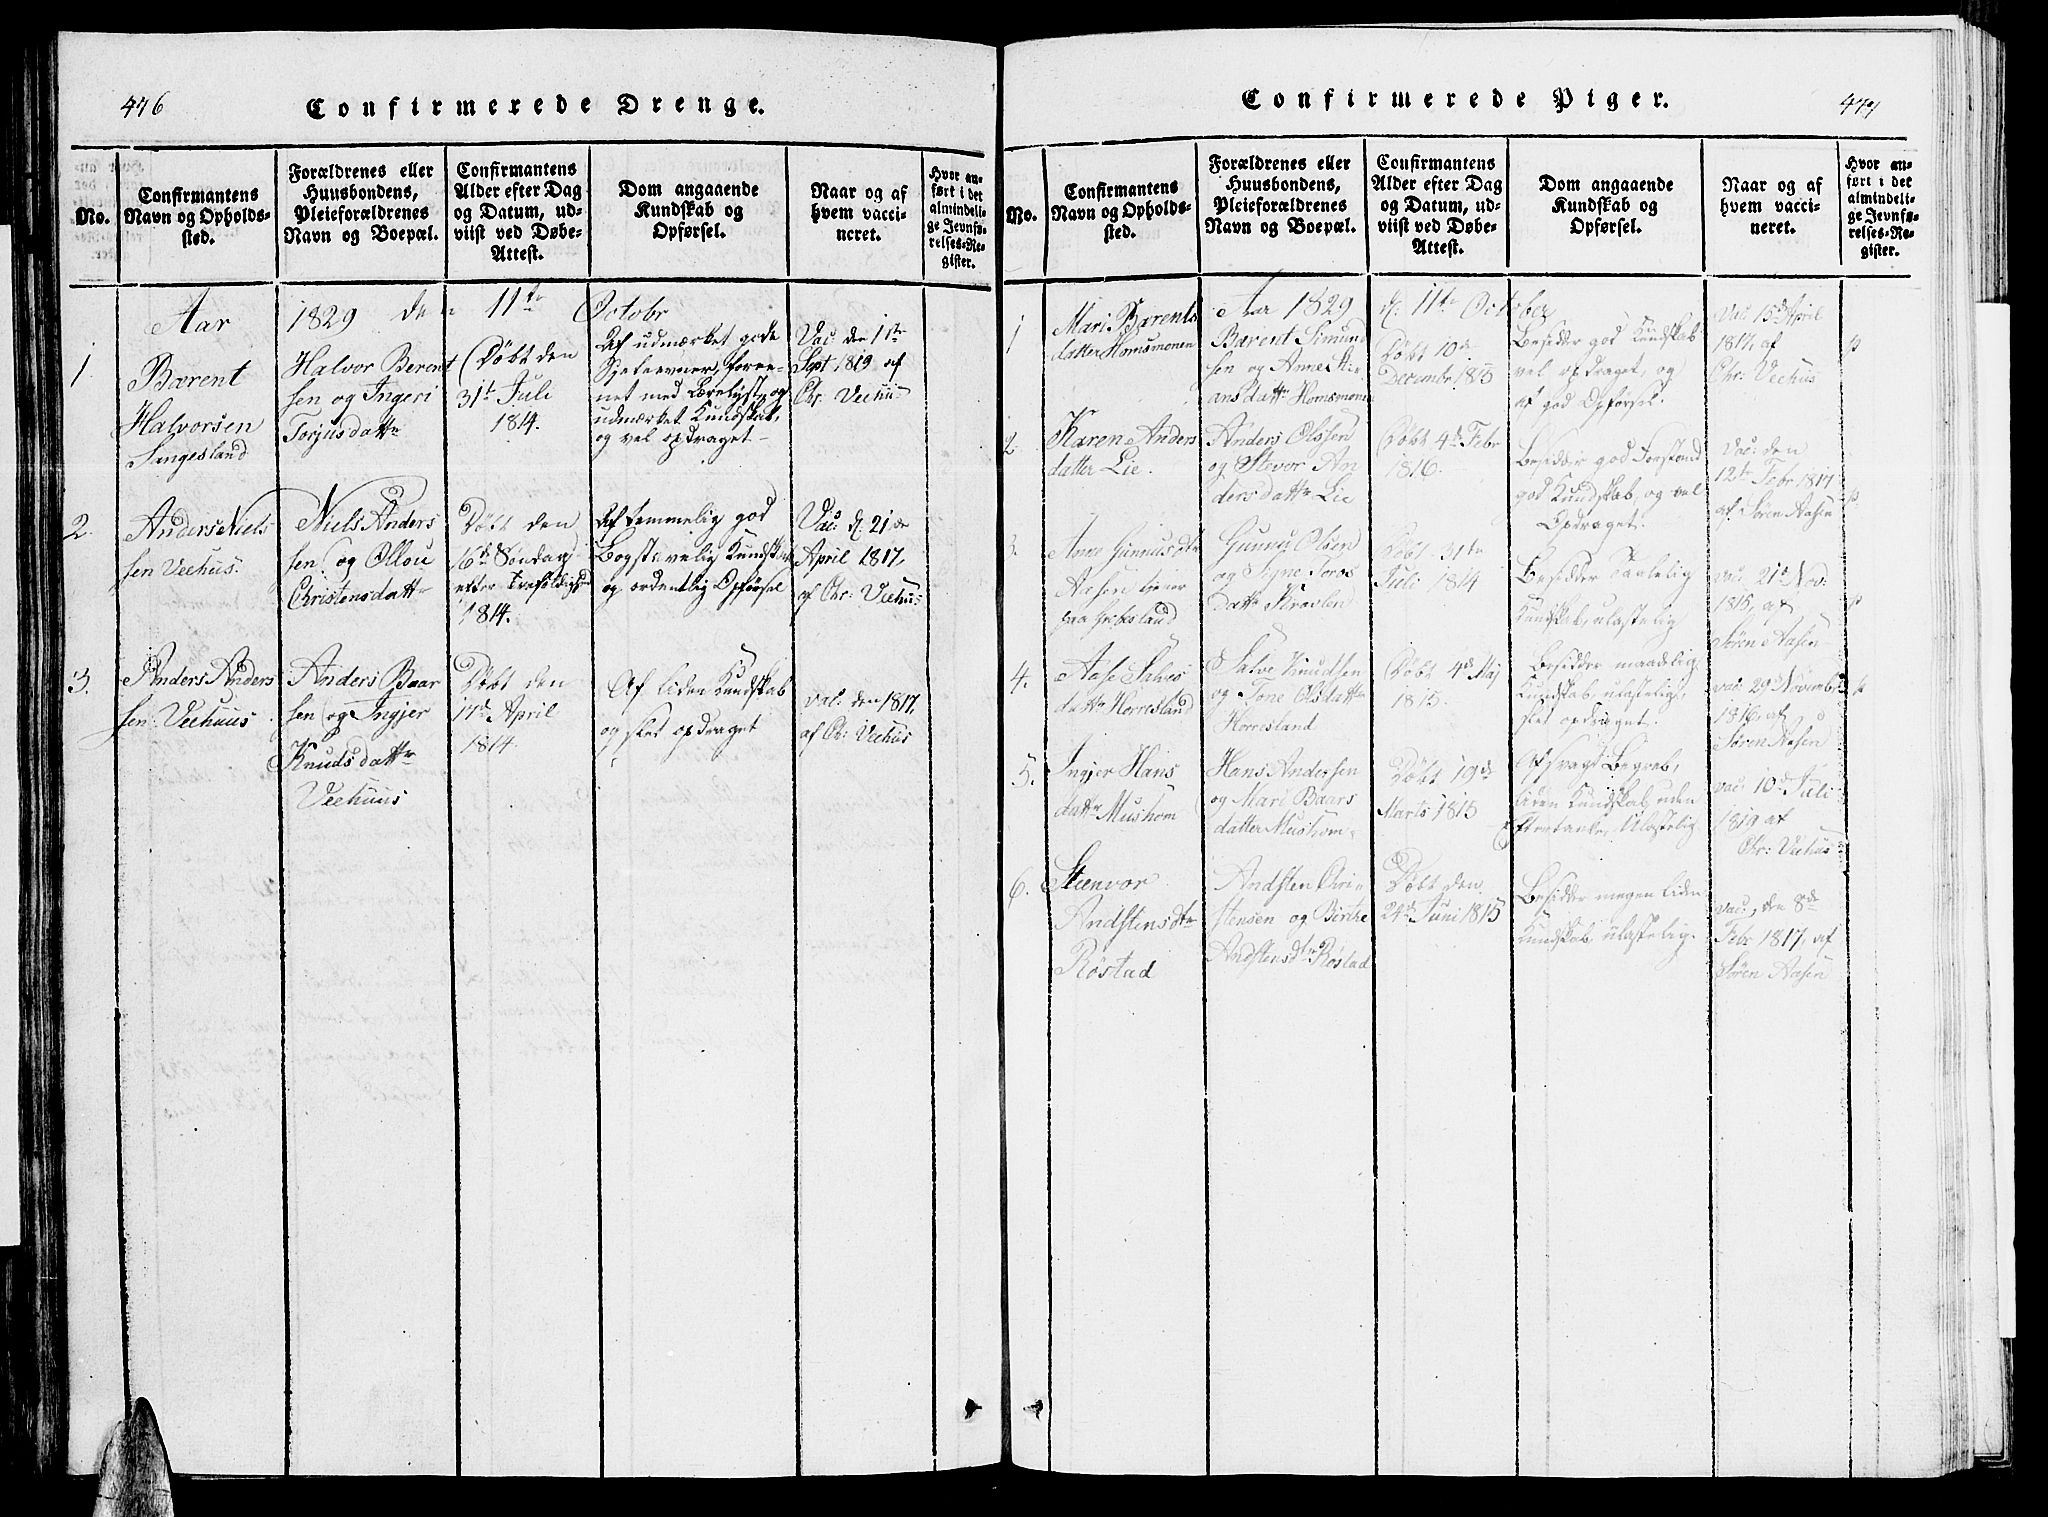 476
Confirmerede Drenge.
No.
Confirmantens
Navn og Opholds-
sted.
Forældrenes eller
Huusbondens,
Pleieforældrenes
Navn og Boepæl.
Confirmantens
Alder efter Dag
og Datum, ud-
viist ved Døbe-
Attest.
Dom angaaende
Kundskab og
Opførsel.
Naar og af
hvem vacci-
neret.
Hvor an-
ført i det
almindeli-
ge Jevnfø-
relses-Re-
gister.
Aar 1829 den 11te Octobr
1.
Bærent
Halvorsen
Sangesland
Halvor Berent
sen og Ingeri
Torjusdattr
Döbt den
31te Juli
1814.
Af udmærket gode
Sjeleevner, foree-
net med Lærelyst, og
udmærket Kundskab,
og vel opdraget
Vac: den 1ste
Sept 1819 af
Chr: Veehuus
2.
Anders Niels
sen Veehus.
Niels Anders
sen og Ollou
Christensdattr
Döbt den
16de Söndag
efter Trefoldighed
1814.
Af temmelig god
Bogstavelig Kundskab
og ordentlig Opförsel
Vac: d: 21de
April 1817,
af Chr: Veehuus
3.
Anders Anders
sen Veehuus
Anders Baar
sen og Ingjer
Knudsdattr
Veehuus
Döbt den
17de April
1814.
Af liden Kundskab
og slet opdraget
vac: den 1817
af Chr: Veehus
Confirmerede Piger.
477
No.
Confirmantens
Navn og Opholds-
sted.
Forældrenes eller
Huusbondens,
Pleieforældrenes
Navn og Boepæl.
Confirmantens
Alder efter Dag
og Datum, ud-
viist ved Døbe-
Attest.
Dom angaaende
Kundskab og
Opførsel.
Naar og af
hvem vacci-
neret.
Hvor an-
ført i det
almindeli-
ge Jevnfø-
relses-Re-
gister.
Aar 1829 d: 11te October
1
Mari Bærents
datter Homsmonen
Bærent Simund
sen og Anne
Homsmonen
Döbt 10de
Decembr 1815
Besidder god Kundskab
vel opdraget, og
af god Opförsel.
Vac: 15de April
1817, af
Chr: Veehus
2.
Karen Anders
datter Lie.
Anders Olssen
og Stevor An
dersdattr Lie
Döbt 4de Febr
1816.
Besidder god Forstand
god Kundskab, og vel
Opdraget.
Vac: den
12te Febr 1817
af Sören Aasen
3.
Anne Gunnusdtr
Aasen tjener
paa
Gunnu Olsen
og Signe
Döbt 31te
Juli 1814
Besidder Taalelig
Kundskab, ulastelig
vac: 21de Nov:
1815, af
Sören Aasen
4.
Aase Salves
dattr Horresland
Salve Knudsen
og Tone Olsdattr
Horresland
Döbt 4de Maj
1815.
Besidder maadelig
Kundskab ulastelig,
slet opdraget.
vac: 29 Novembr
1816, af
Sören Aasen
5.
Ingjer Hans
dattr Mushom
Hans Andersen
og Mari Baars
datter Mushom
Döbt 19de
Marts 1815
Af svagt Begreb,
liden Kundskab, uden
Eftertanke, Ulastelig
vac: 10de Juli
1819 af
Chr: Veehus
6.
Steenvor
Andstensdtr
Röstad
Andsten Chri-
stensen og Birthe
Andstensdtr Röstad
Döbt den
24de Juni 1815
Besidder megen liden
Kundskab, ulastelig.
vac:, den 8de
Febr 1817, af
Sören Aasen